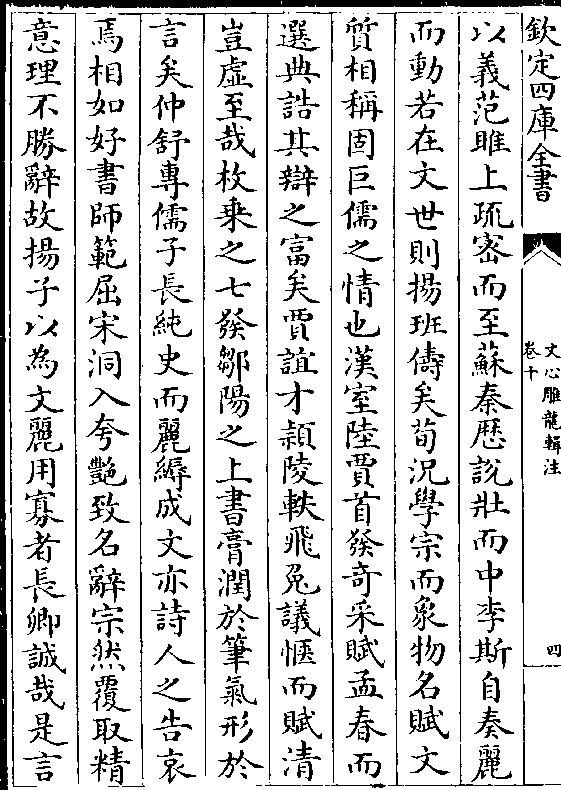 欽定四庫全書
文心雕龍輯注
卷十
四
以義范雎上疏宻而至蘇秦歴説壯而中李斯自奏麗
而動若在文世則揚班儔矣荀況學宗而象物名賦文
質相稱固巨儒之情也漢室陸賈首發奇采賦孟春而
選典誥其辯之富矣賈誼才頴陵軼飛兔議愜而賦清
豈虛至哉枚乗之七發鄒陽之上書膏潤於筆氣形於
言矣仲舒專儒子長純史而麗縟成文亦詩人之告哀
焉相如好書師範屈宋洞入夸艷致名辭宗然覆取精
意理不勝辭故揚子以為文麗用寡者長卿誠哉是言